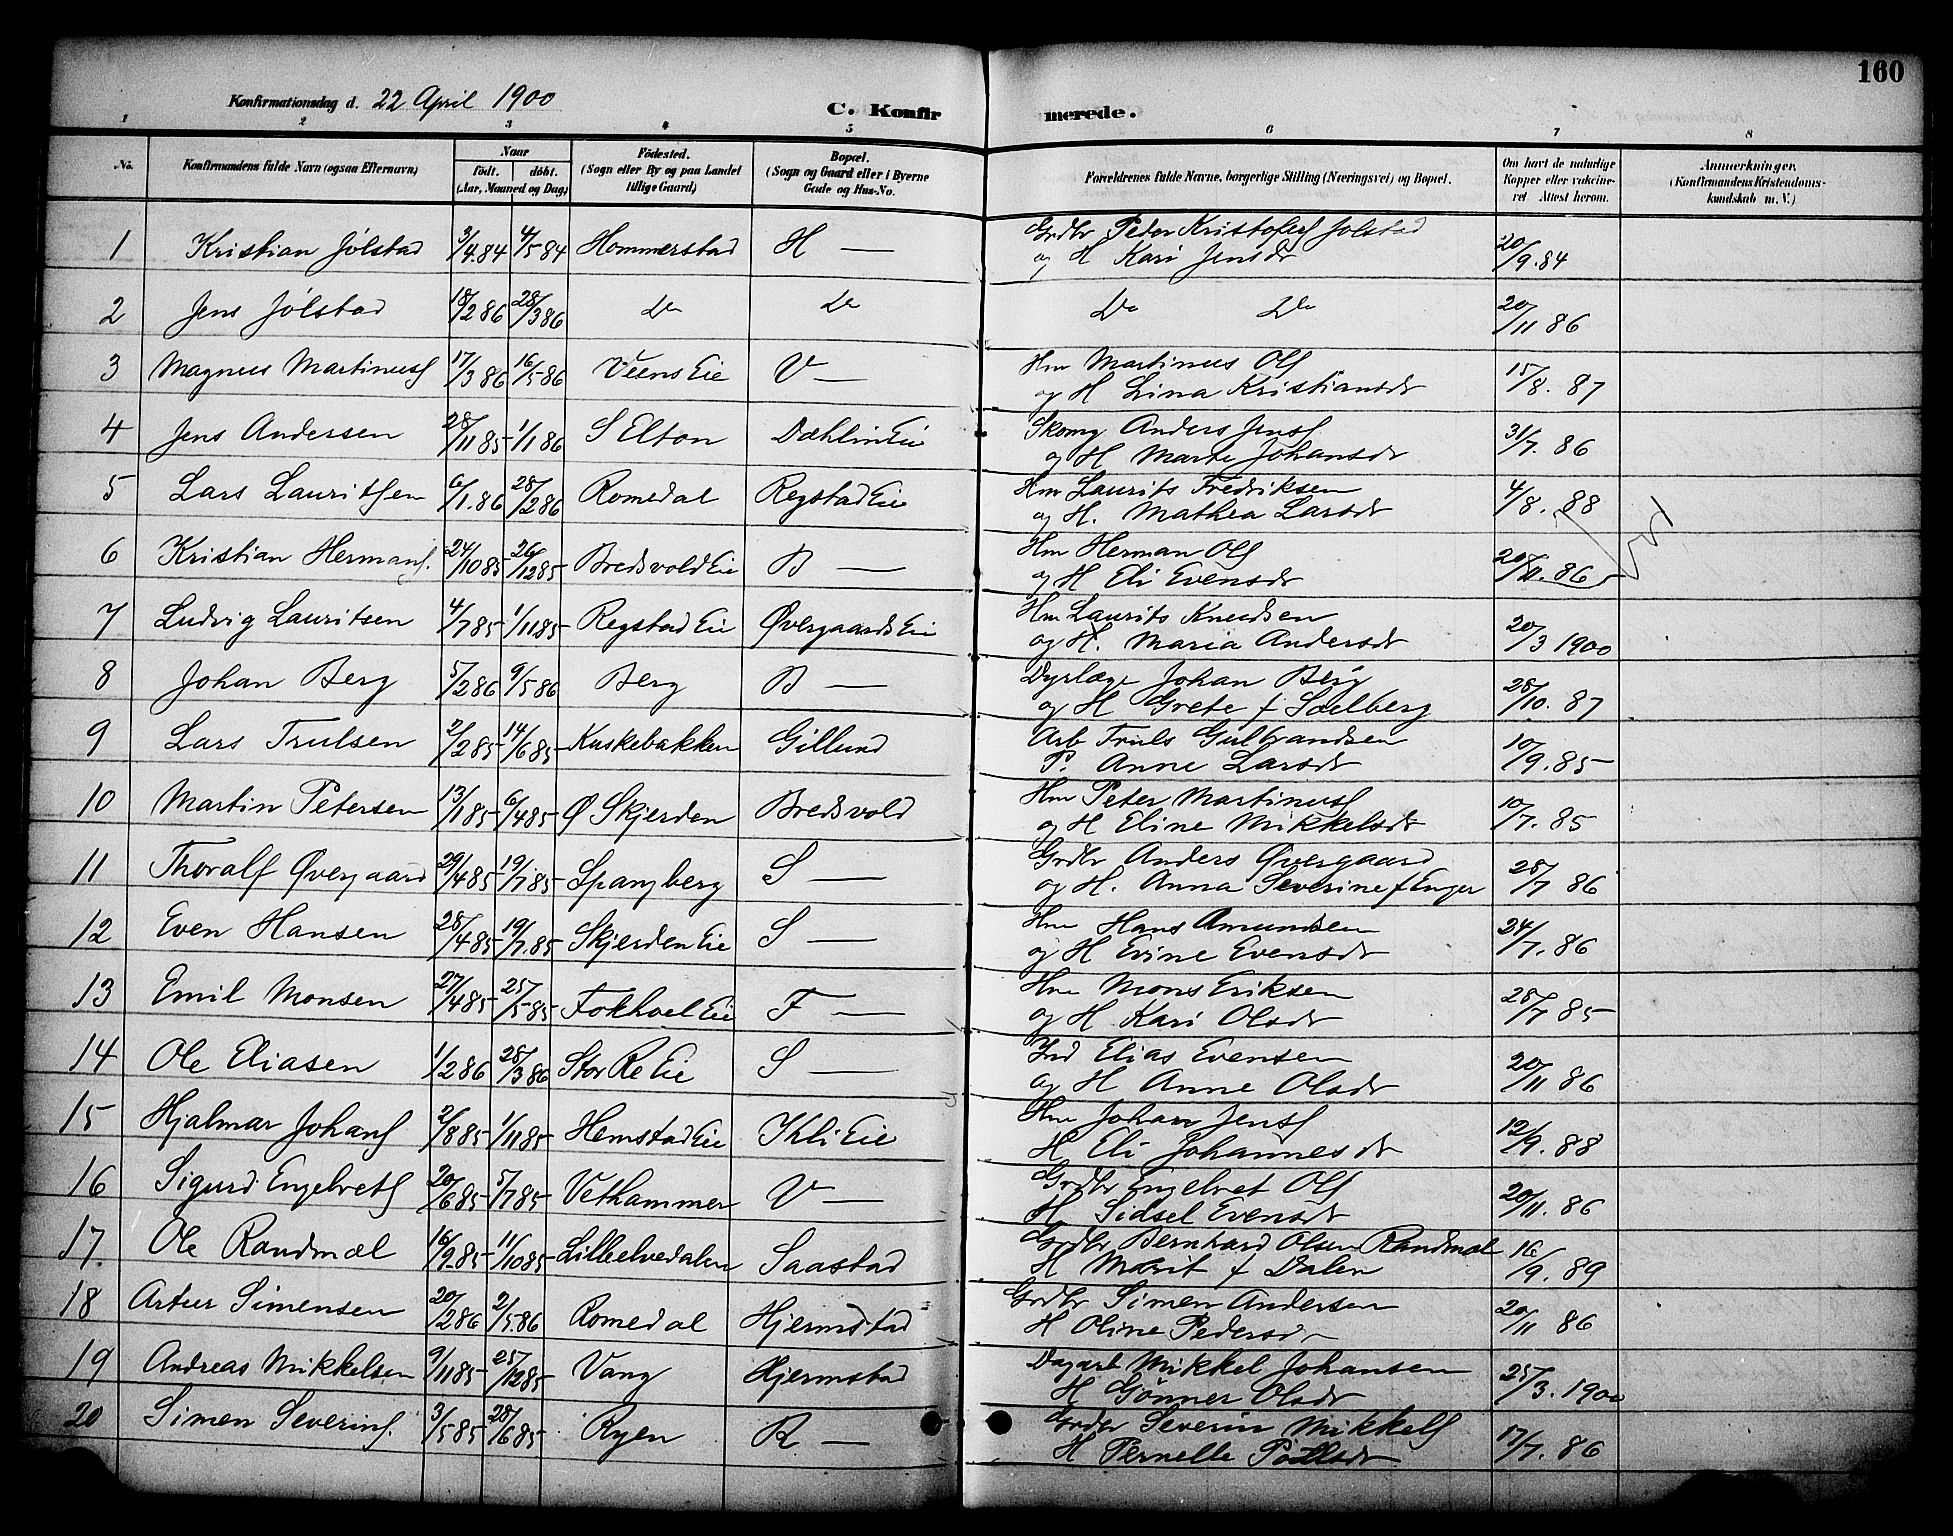 160
Konfirmationsdag d. 22 April 1900
C. Konfir merede.
1 2 3 4 5 6 7 8
No. Konfirmandens fulde Navn (ogsaa Efternavn) Naar født. døbt. (Aar, Maaned og Dag) Fødested. (Sogn eller By og paa Landet tillige Gaard) Bopæl. (Sogn og Gaard eller i Byerne Gade og Hus-No. Forældrenes fulde Navne, borgerlige Stilling (Næringsvei) og Bopæl. Om havt de naturlige Kopper eller vakcineret Attest herom. Anmærkninger. (Konfirmandens Kristendomskundskab m. V.)
1 Kristian Jølstad 3/4.84 4/5 84 Hommerstad H — Grdbr Peder Kristofers Jølstad
og H Kari Jensdr 20/9.84
2 Jens Jølstad 18/2 86 28/3 86 Do Do Do Do 20/11 86
3 Magnus Martinus 17/3 86 16/5 86 Veens Eie V — Hm Martinus Ols
og H Lina Kristiansdr 15/8. 87
4 Jens Andersen 28/11 85 1/1 86 S Elton Dæhlin Eie Skomg Anders Jens
og H Marte Johansdr 31/7. 86
5 Lars Lauritsen 6/1.86 28/2 86 Romedal Regstad Eie Hm Laurits Fredriksen
og H. Mathea Larsdr 4/8. 88
6 Kristian Hermans. 24/10 85 26/12 85 Bredsvold Eie B — Hm Herman Ols
og H Eli Evensdr 20/11. 86
7 Ludvig Lauritsen 4/7 85 1/11 85 Regstad Eie Øvergaards Eie Hm Laurits Knudsen
og H. Maria Andersdr 20/3 1900
8 Johan Berg 5/2 86 9/5 86 Berg B — Dyrlæge Johan Berg
og H Grete f Solberg 28/10. 87
9 Lars Trulsen 2/2 85 14/6 85 Kuskebakken Gillund Arb Truls Gulbrandsen
P. Anne Larsdr 10/9. 85
10 Martin Petersen 13/1 85 6/4 85 Ø Skjerden Bredsvold Hm Peter Martinus
og H Eline Mikkelsdr 10/7. 85
11 Thoralf Øvergaard 29/4 85 19/7 85 Spangberg S — Grdbr Anders Øvergaard
og H. Anna Severine f Enger 28/7 86
12 Even Hansen 28/4 85 19/7.85 Skjerden Eie S — Hm Hans Amundsen
og H Evine Evensdr 24/7. 86
13 Emil Monsen 27/4 85 25/5 85 Fokhol Eie F — Hm Mons Eriksen
og H Kari Olsdr 28/7 85
14 Ole Eliasen 1/2 86 28/3 86 Stor Re Eie S — Ind Elias Evensen
og H Anne Olsdr 20/11 86
15 Hjalmar Johans 2/8 85 1/11 85 Hemstad Eie Ihli Eie Hm Johan Jens
H Eli Johannesdr 12/9. 88
16 Sigurd Engelbrets 20/6 85 5/7 85 Vethammer V — Grdbr Engelbret Ols
H Sidsel Evensdr 20/11. 86
17. Ole Randmæl 16/9 85 11/10 85 Lilleelvedalen Saastad Grdbr Bernhard Olsen Randmæl
H Marit f Dalen 16/9. 89
18 Artur Simensen 20/2 86 2/5.86 Romedal Hjermstad Grdbr Simen Andersen
H Oline Pedersdr 20/11 86
19 Andreas Mikkelsen 9/11 85 25/12 85 Vang Hjermstad Dagarb Mikkel Johansen
H Gønner Olsdr 25/3. 1900
20 Simen Severins. 3/5 85 28/6 85 Ryen R — Grdbr Severin Mikkels
H Pernelle Poulsdr 17/7. 86